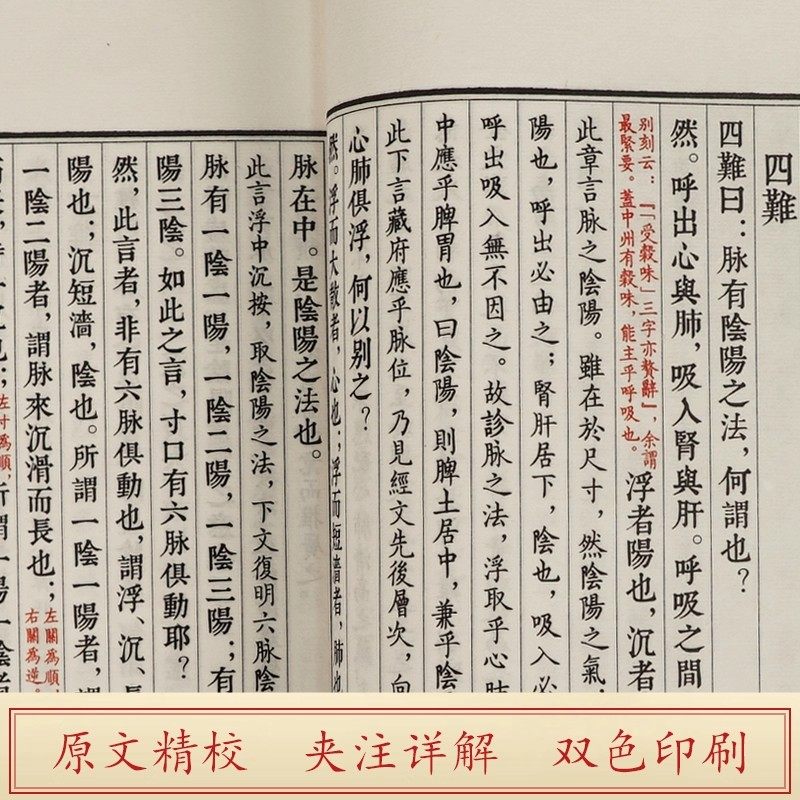 四難
四難曰：脉有陰陽之法，何謂也？
然。呼出心與肺，吸入腎與肝。呼吸之間
别刻云：「『受穀味』三字亦贅辭」，余謂
最緊要。蓋中州有穀味，能主乎呼吸也。
浮者陽也，沉者
此章言脉之陰陽。雖在於尺寸，然陰陽之氣，
陽也，呼出必由之；腎肝居下，陰也，吸入必
呼出吸入無不因之。故診脉之法，浮取乎心肺
中應乎脾胃也，曰陰陽，則脾土居中，兼乎陰
此下言藏府應乎脉位，乃見經文先後層次，向
心肺俱浮，何以别之？
然。浮而大散者，心也；浮而短濇者，肺也
脉在中。是陰陽之法也。
此言浮中沉按，取陰陽之法，下文復明六脉陰
脉有一陰一陽，一陰二陽，一陰三陽；有
陽三陰。如此之言，寸口有六脉俱動耶？
然，此言者，非有六脉俱動也，謂浮、沉、長
陽也；沉短濇，陰也。所謂一陰一陽者，謂
一陰二陽者，謂脉來沉滑而長也；
左關為順，
右關為逆。
左寸為順，
所謂一陽一陰者
原文精校 夹注详解 双色印刷